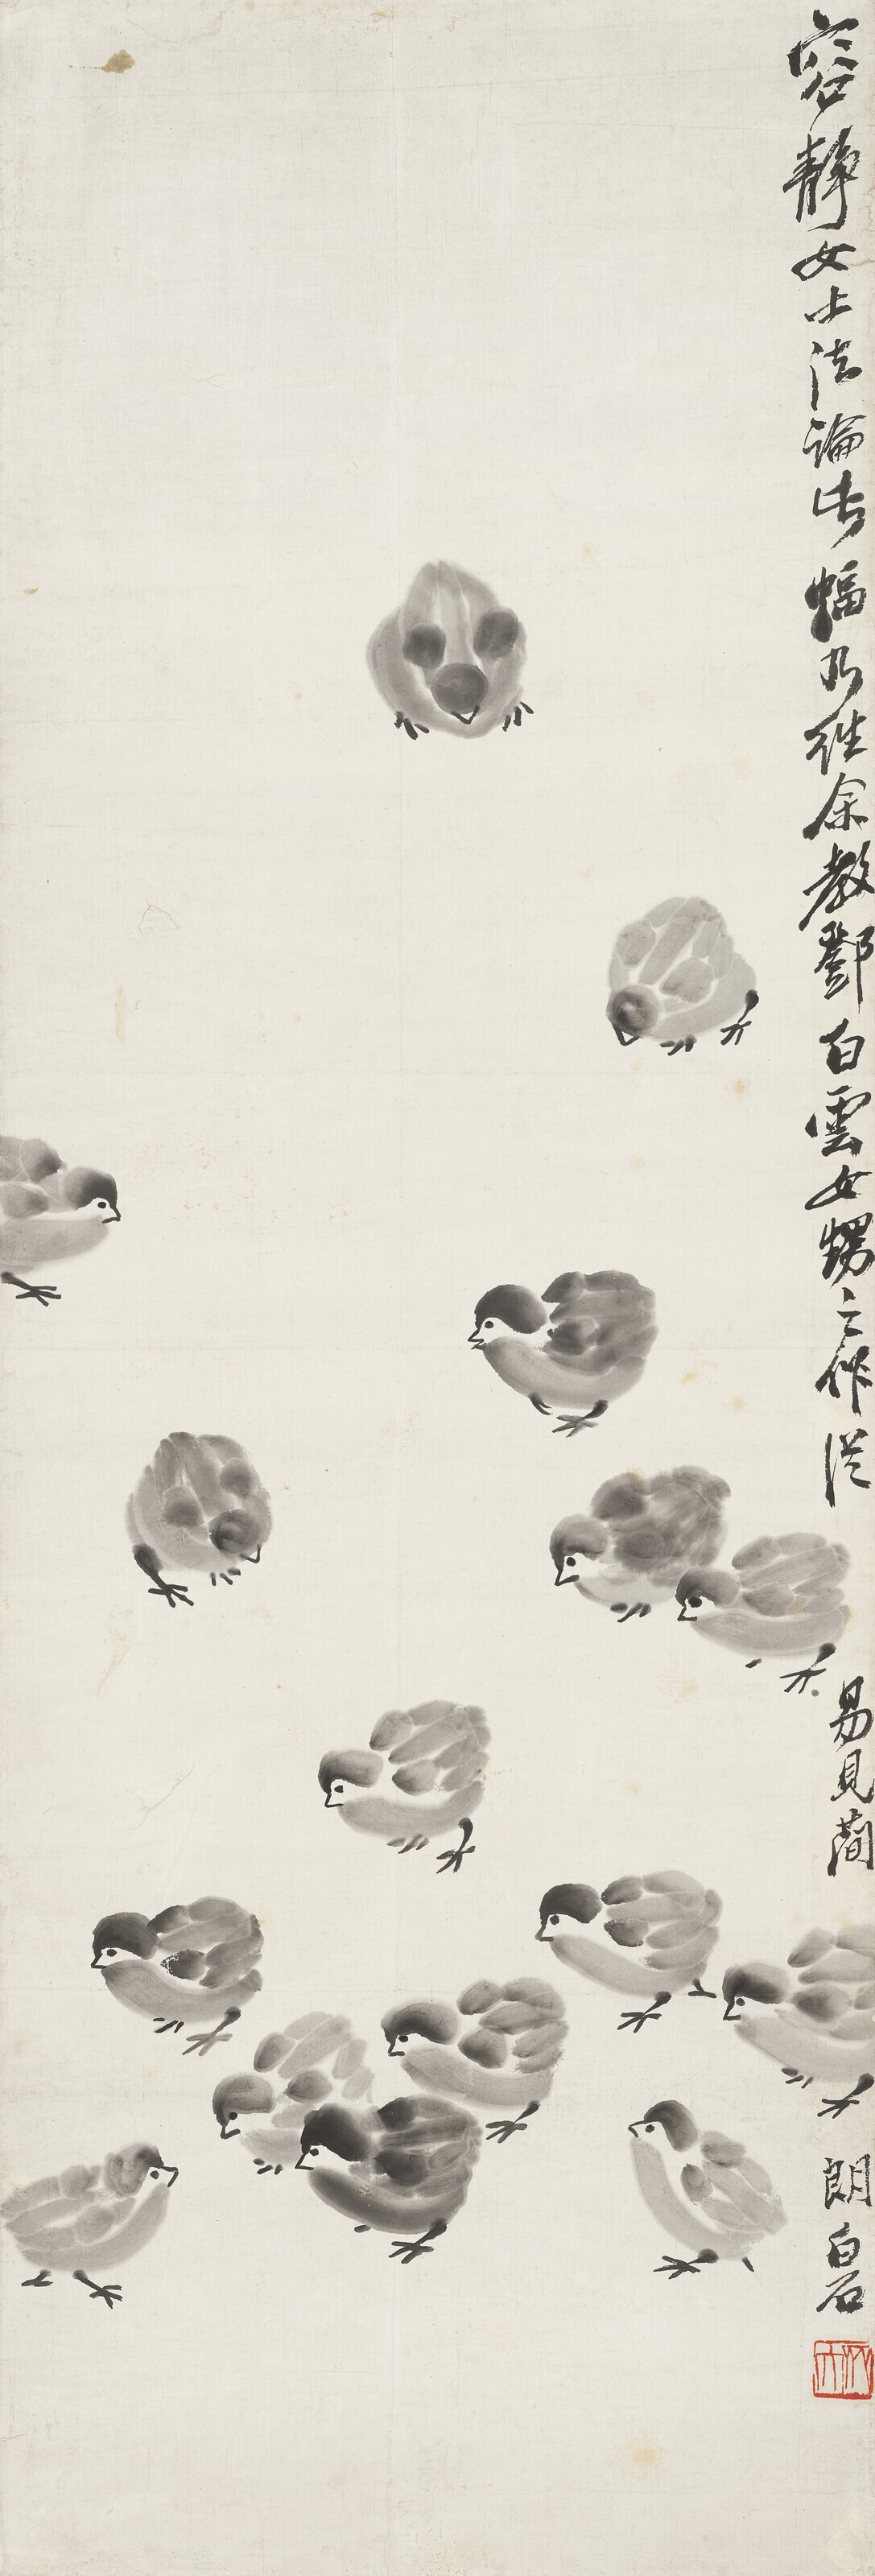 容靜女士法論此幅乃往余教鄧白雲女甥之作從易見蕳朗白石